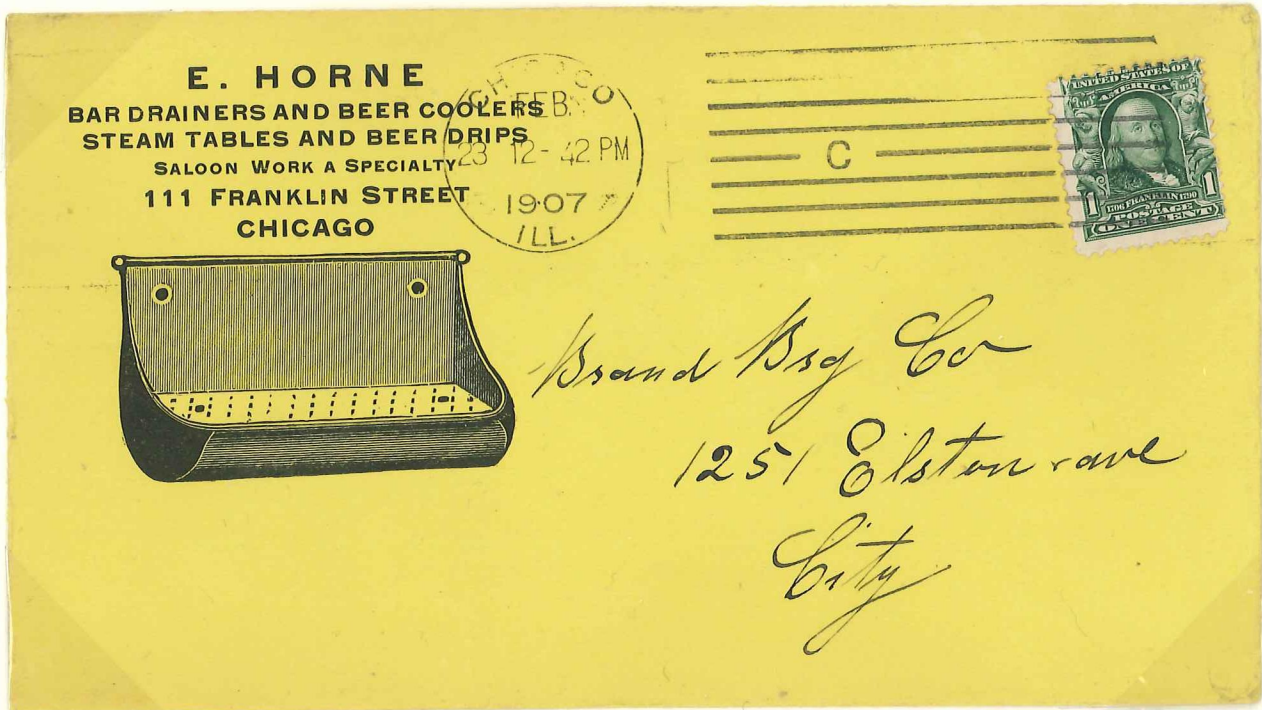 E. HORNE
BAR DRAINERS AND BEER COOLERS
STEAM TABLES AND BEER DRIPS
SALOON WORK A SPECIALTY
111 FRANKLIN STREET
CHICAGO
CHICAGO
FEB
23 12-42 PM
1907
ILL.
C
UNITED STATES OF
AMERICA
1706 FRANKLIN 1790
1 POSTAGE 1
ONE CENT
Brand Brg Co
1251 Elston ave
City